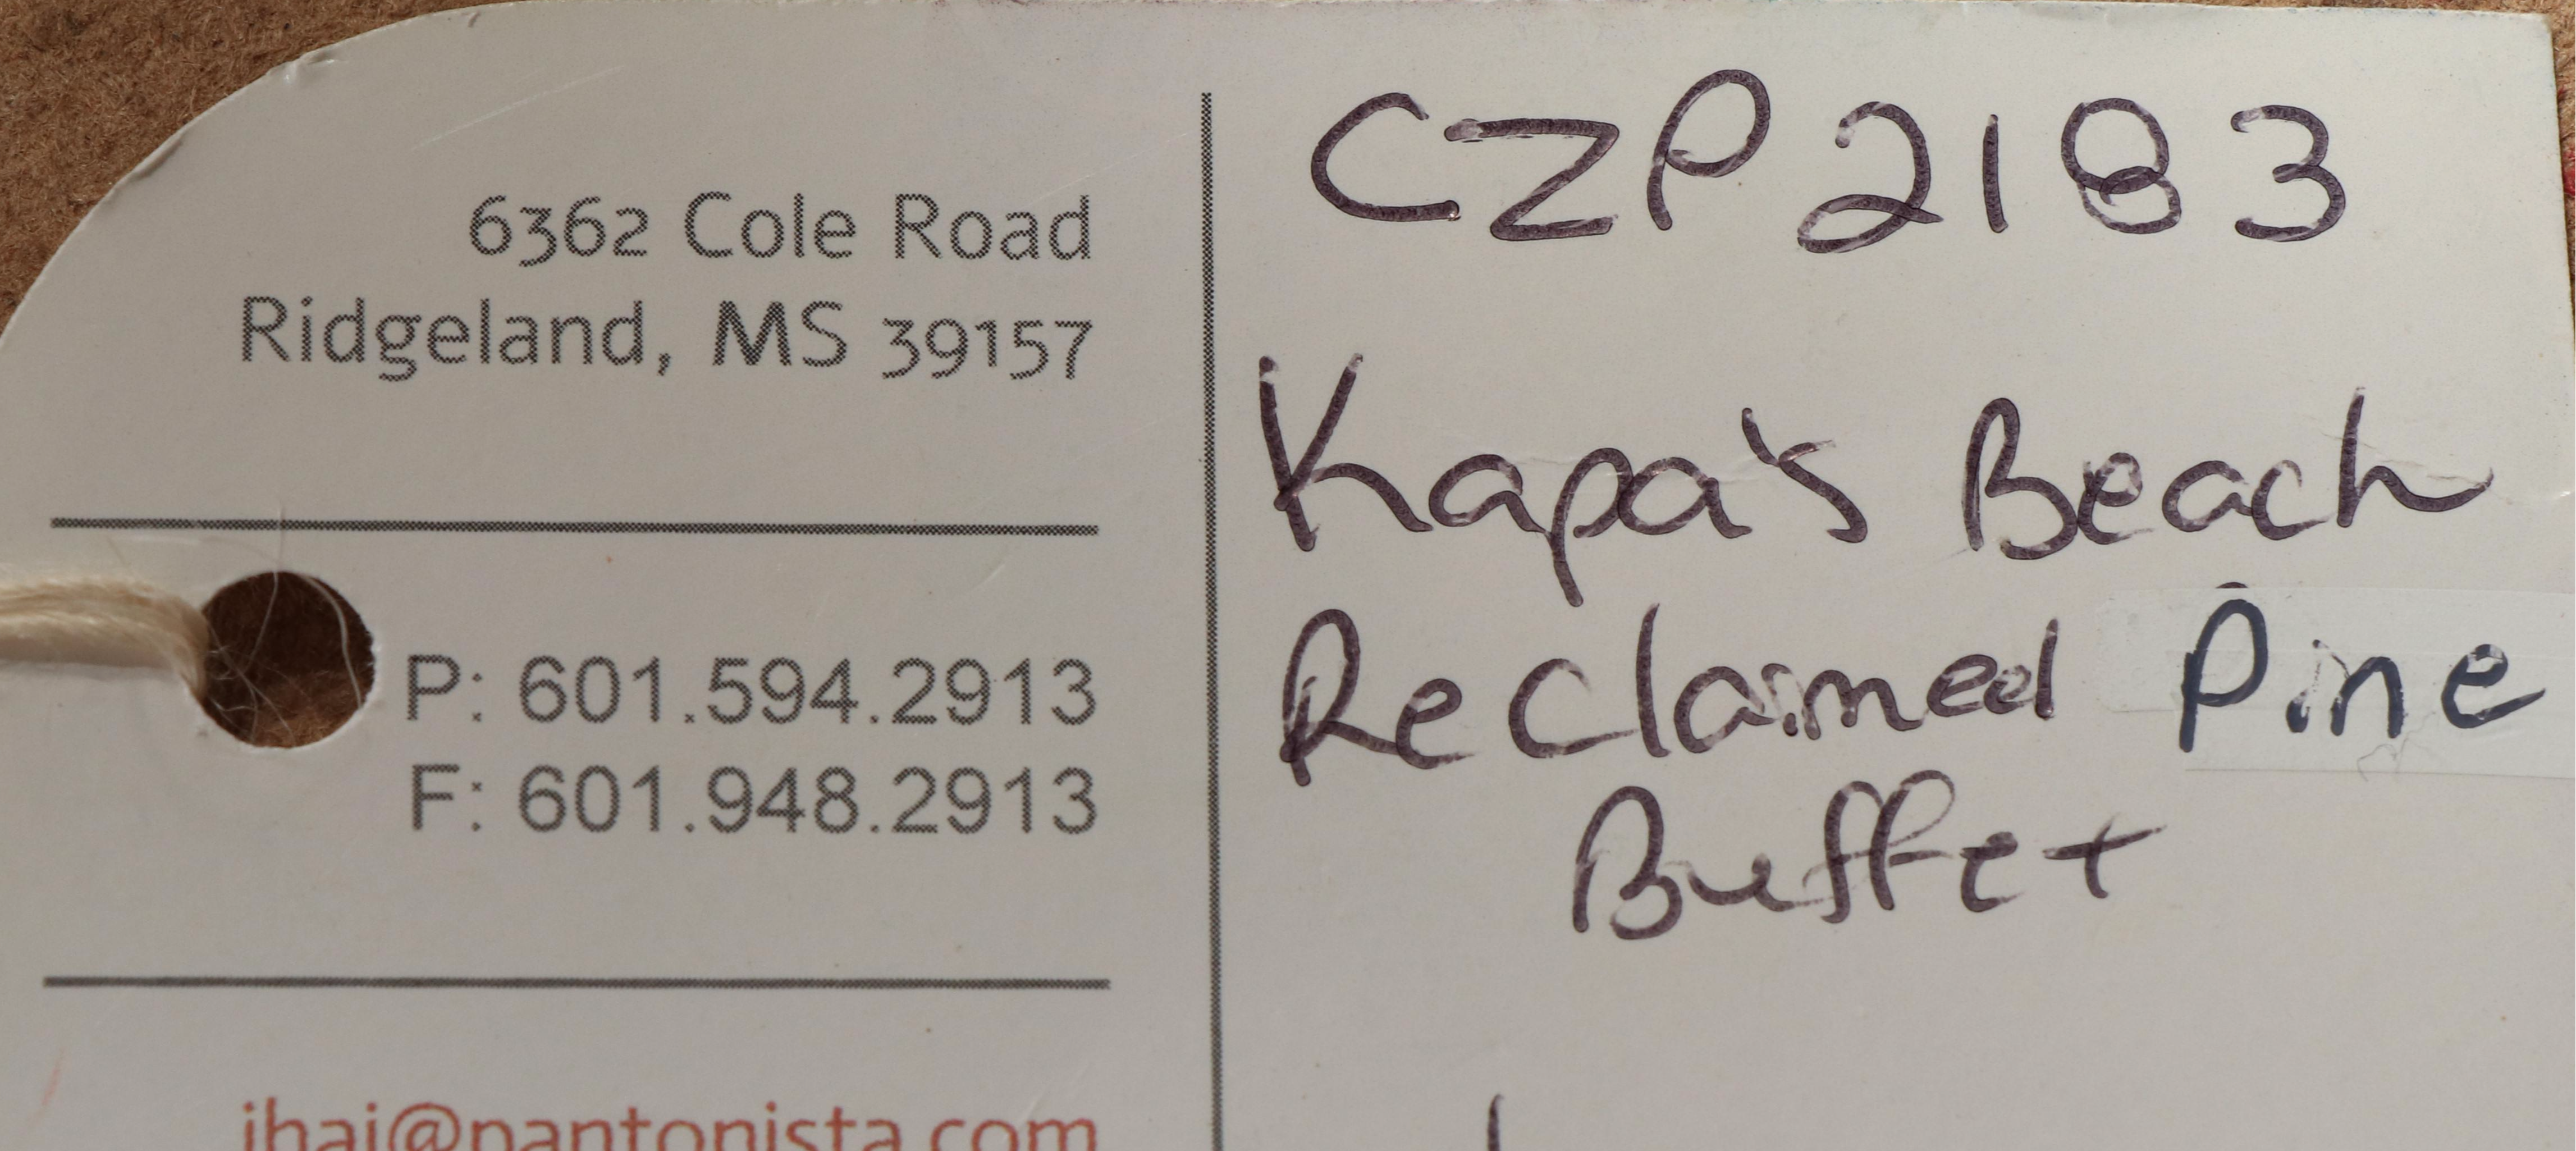 6362 Cole Road
Ridgeland, MS 39157
P: 601.594.2913
F: 601.948.2913
jhaj@pantonista.com
CZP2183
Kapa's Beach
Reclaimed Pine
Buffet